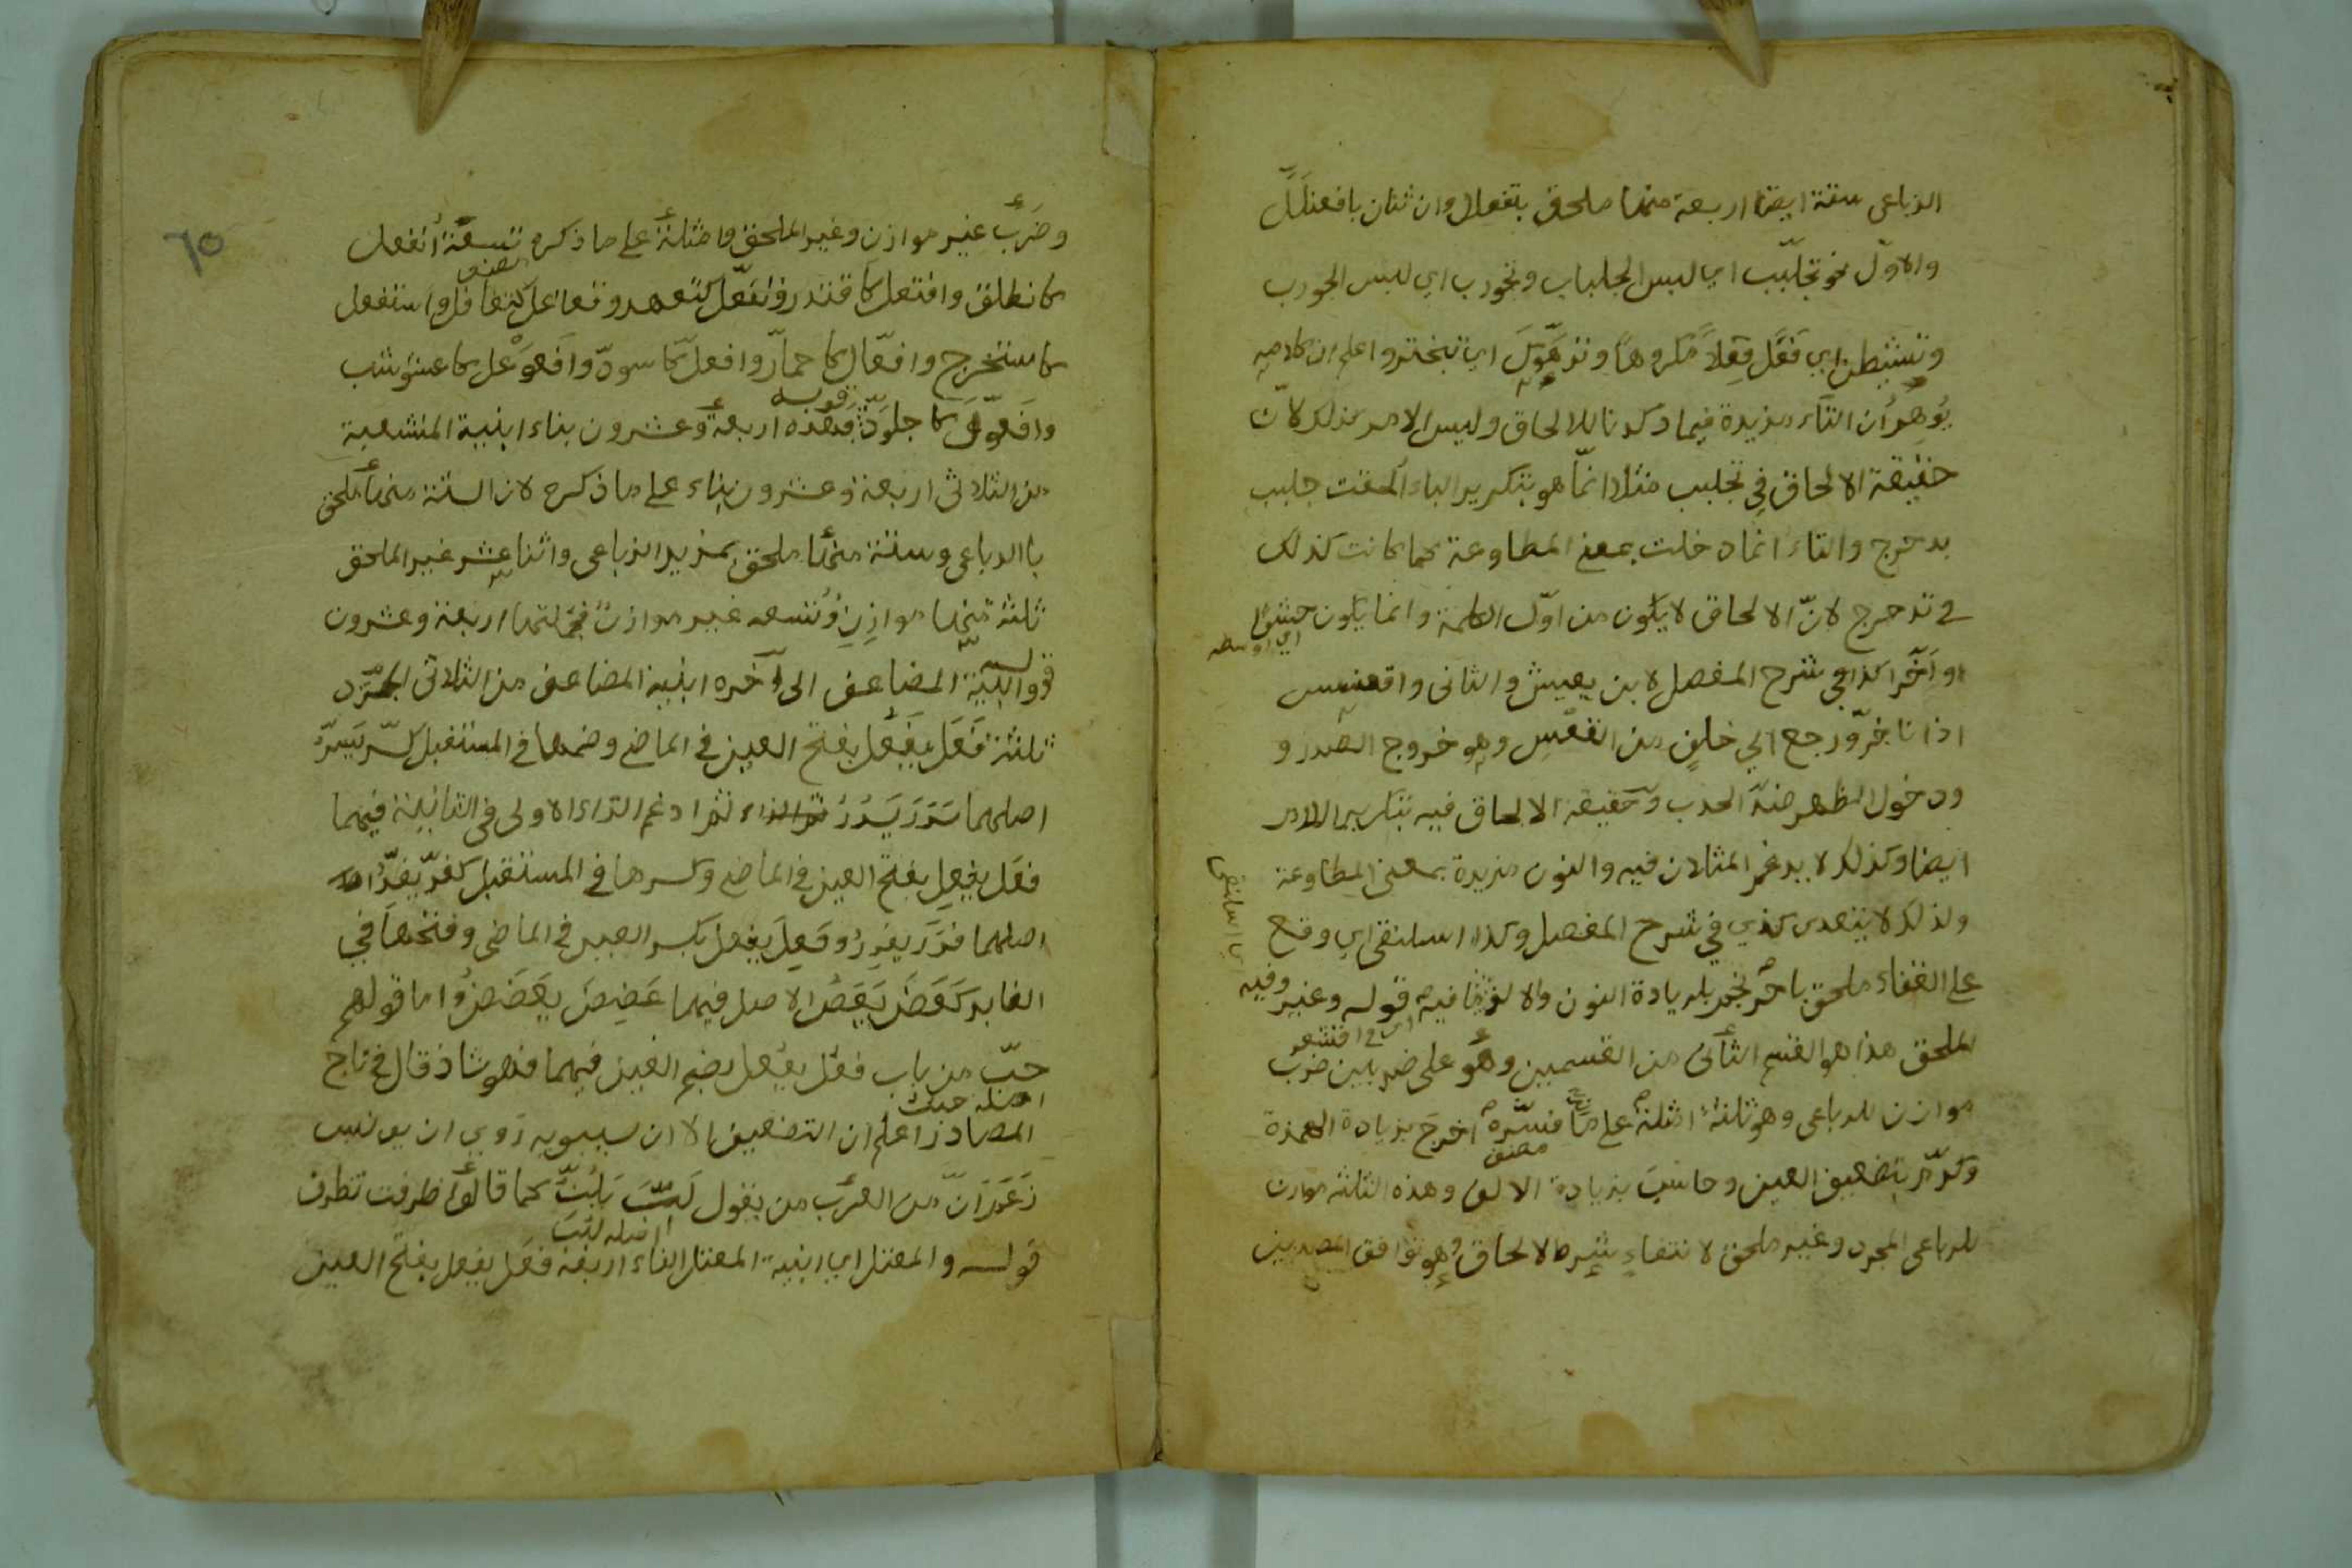 الرباعى ستة ايضا اربعة منها ملحق بتفعلل وان ثنان بافعنلَلَ
والاوّل نحو تجلبب اي لبس الجلباب وتجورب اي لبس الجورب
وتشيطن اي فَعَل فِعلاً مكروهًا وترَهْوَكَ اي تبختر واعلم ان كلامه
يُوهِمُ ان التاء مزيدة فيما ذكرنا للالحاق وليس الامر كذلك لانّ
حقيقة الالحاق فى تجلبب مثلا انّما هو بتكرير الباء الحقت جلبب
بدحرج والتاء انما دخلت بمعنى المطاوعة كما كانت كذلك
فى تدحرج لانّ الالحاق لا يكون من اوّل الكلمة وانما يكون حشوًا
اي اوسطه
او آخرا كذا فى شرح المفصل لابن يعيش والثانى واقعنسس
اذا تاخّر ورجع الي خلفٍ من القعَسِ وهو خروج الصدر و
ودخول الظهر ضدّ الحدب وحقيقة الالحاق فيه بتكرير اللام
ايضا وكذلك لا يدغم المثلان فيه والنون مزيدة بمعنى المطاوعة
ولذلك لا يتعدى كذي في شرح المفصل وكذا اسلنقى اي وقع
على القفاء ملحق باحرنجم بزيادة النون والالف فيه قوله وغير
الملحق هذا هو القسم الثانى من القسمين وهو على ضربين ضرب
اى فى اقشعر
موازن للرباعى وهو ثلثة امثلة على ما فسّره اخرجَ بزيادة الهمزة
مصنف
وكرّم بتضعيف العين وحاسَبَ بزيادة الالف وهذه الثلثه موازن
للرباعى المجرد وغير ملحق لانتفاءِ شرط الالحاق وهو توافق المصدرين
٦٥
وضربٌ غير موازن وغير الملحق وامثلتة على ما ذكره تسعة انفعل
مصنف
كانطلق وافتعل كاقتدر وتفعّل كتعهد وتفاعل كتغافل واستفعل
كاستخرج وافعّال كاحمارّ وافعلّ كاسودّ وافعوعل كاعشوشب
وافعوّل كاجلوّذ قوله فهذه اربعة وعشرون بناء ابنية المنشعبة
من الثلاثى اربعة وعشرون بناء على ما ذكره لان الستة منها ملحق
باالرباعى وستة منها ملحق بمزيد الرباعى واثنا عشر غير الملحق
ثلثة منها موازِنٍ وتسعه غير موازن فجملتها اربعة وعشرون
قوله وابنية المضاعف الى آخره ابنية المضاعف من الثلاثى المجرّد
ثلثة فَعَل يفعُل بفتح العين فى الماضى وضمها فى المستقبل كسرّ يَسُرّ
اصلهما سَرَرَ يَسْرُرُ ثم ادغم الراء الاولى فى الثانية فيهما
فعَل يفعِل بفتح العين فى الماضى وكسرها فى المستقبل كفرّ يفرّ
اصلهما فرَرَ يفرِرُ وفَعِلَ يفعل بكسر العين فى الماضى وفتحها في
الغابر كعَضّ يَعَضّ الاصل فيهما عَضِضَ يعْضَضُ واما قولهم
حبّ من باب فعُل يفعُل بضم العين فيهما فهو شاذ قال فى تاج
اصله حبب
المصادر اعلم ان التضعيف الا ان سيبويه رَوي ان يونس
زَعَمَ انّ من العرب من يقول لَبُبْتَ تَلُبُّ كما قالوا ظرفت تظرف
اصله لبُبَ
قوله والمعتل اي ابنية المعتل الفاء اربعة فعَل يفعل بفتح العين